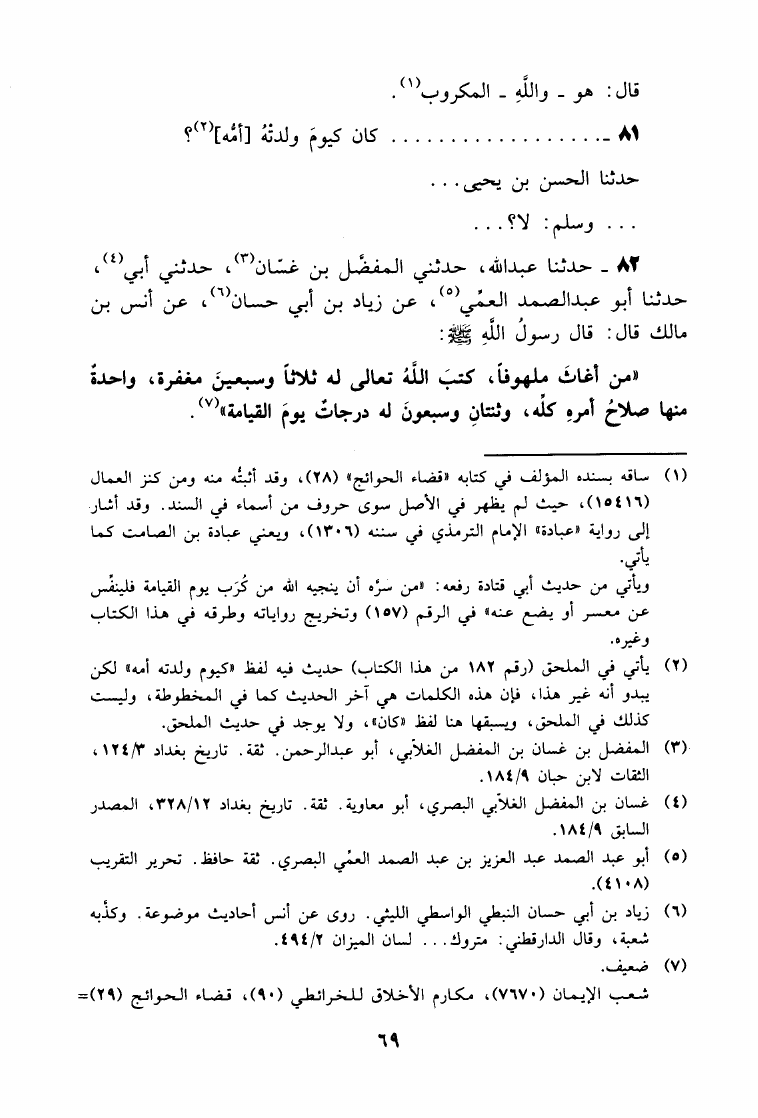 قال: هو - واللَّهِ - المكروب(١).
٨١ - .................. كان كيومَ ولدتْهُ [أمُّه](٢)؟
حدثنا الحسن بن يحيى...
... وسلم: لا؟...
٨٢ - حدثنا عبدالله، حدثني المفضَّل بن غسّان(٣)، حدثني أبي(٤)،
حدثنا أبو عبدالصمد العمِّي(٥)، عن زياد بن أبي حسان(٦)، عن أنس بن
مالك قال: قال رسولُ اللَّهِ ﷺ:
«من أغاثَ ملهوفاً، كتبَ اللَّهُ تعالى له ثلاثاً وسبعينَ مغفرة، واحدةٌ
منها صلاحُ أمرهِ كلِّه، وثنتانِ وسبعونَ له درجاتٌ يومَ القيامة»(٧).
(١) ساقه بسنده المؤلف في كتابه «قضاء الحوائج» (٢٨)، وقد أثبتُّه منه ومن كنز العمال
(١٥٤١٦)، حيث لم يظهر في الأصل سوى حروف من أسماء في السند. وقد أشار
إلى رواية «عبادة» الإمام الترمذي في سننه (١٣٠٦)، ويعني عبادة بن الصامت كما
يأتي.
ويأتي من حديث أبي قتادة رفعه: «من سرَّه أن ينجيه الله من كُرَب يوم القيامة فلينفِّس
عن معسر أو يضع عنه» في الرقم (١٥٧) وتخريج رواياته وطرقه في هذا الكتاب
وغيره.
(٢) يأتي في الملحق (رقم ١٨٢ من هذا الكتاب) حديث فيه لفظ «كيوم ولدته أمه» لكن
يبدو أنه غير هذا، فإن هذه الكلمات هي آخر الحديث كما في المخطوطة، وليست
كذلك في الملحق، ويسبقها هنا لفظ «كان»، ولا يوجد في حديث الملحق.
(٣) المفضل بن غسان بن المفضل الغلاّبي، أبو عبدالرحمن. ثقة. تاريخ بغداد ١٢٤/٣،
الثقات لابن حبان ١٨٤/٩.
(٤) غسان بن المفضل الغلاّبي البصري، أبو معاوية. ثقة. تاريخ بغداد ٣٢٨/١٢، المصدر
السابق ١٨٤/٩.
(٥) أبو عبد الصمد عبد العزيز بن عبد الصمد العمِّي البصري. ثقة حافظ. تحرير التقريب
(٤١٠٨).
(٦) زياد بن أبي حسان النبطي الواسطي الليثي. روى عن أنس أحاديث موضوعة. وكذَّبه
شعبة، وقال الدارقطني: متروك... لسان الميزان ٤٩٤/٢.
(٧) ضعيف.
شعب الإيمان (٧٦٧٠)، مكارم الأخلاق للخرائطي (٩٠)، قضاء الحوائج (٢٩)=
٦٩